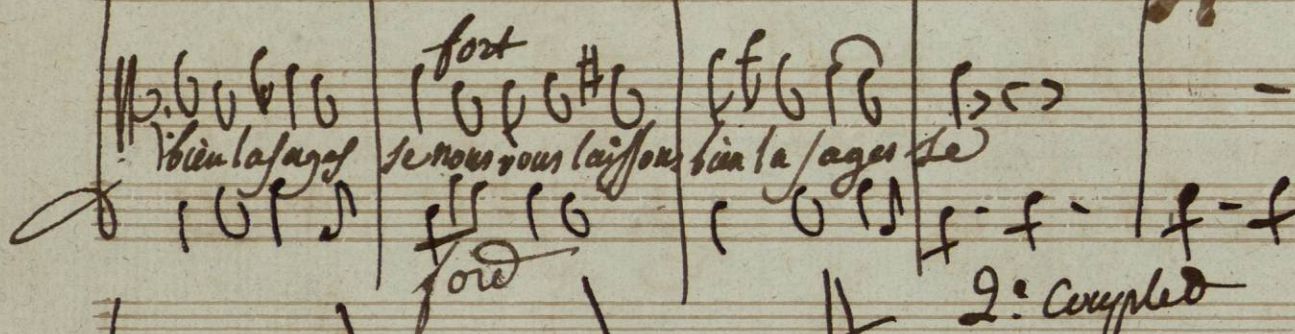 fort
bien la sagesse nous vous laissons bien la sagesse
ford
2.e couplet